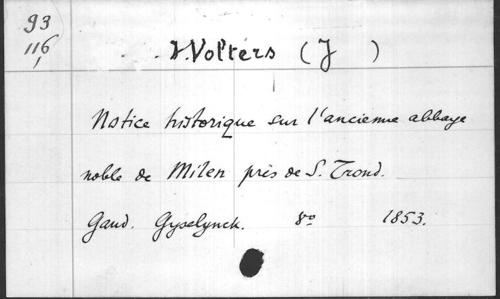 93
116
1
Wolters (J )
Notice historique sur l'ancienne abbaye
noble de Milen près de S. Trond.
Gand. Gyselynck. 8º 1853.